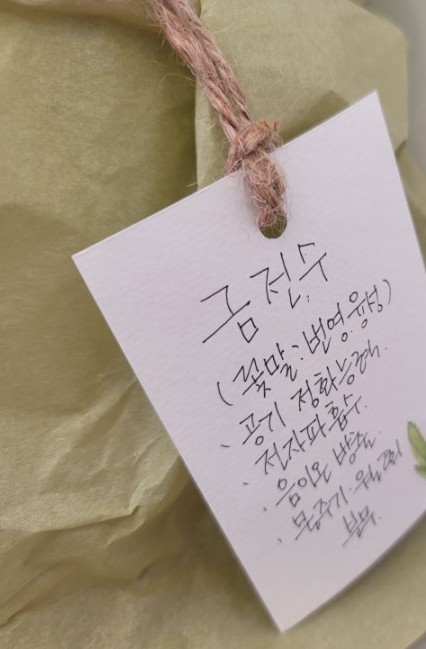 금전수
(꽃말: 번영.융성)
. 공기 정화능력.
. 전자파흡수.
. 음이온 방출.
. 물주기. 월 2회